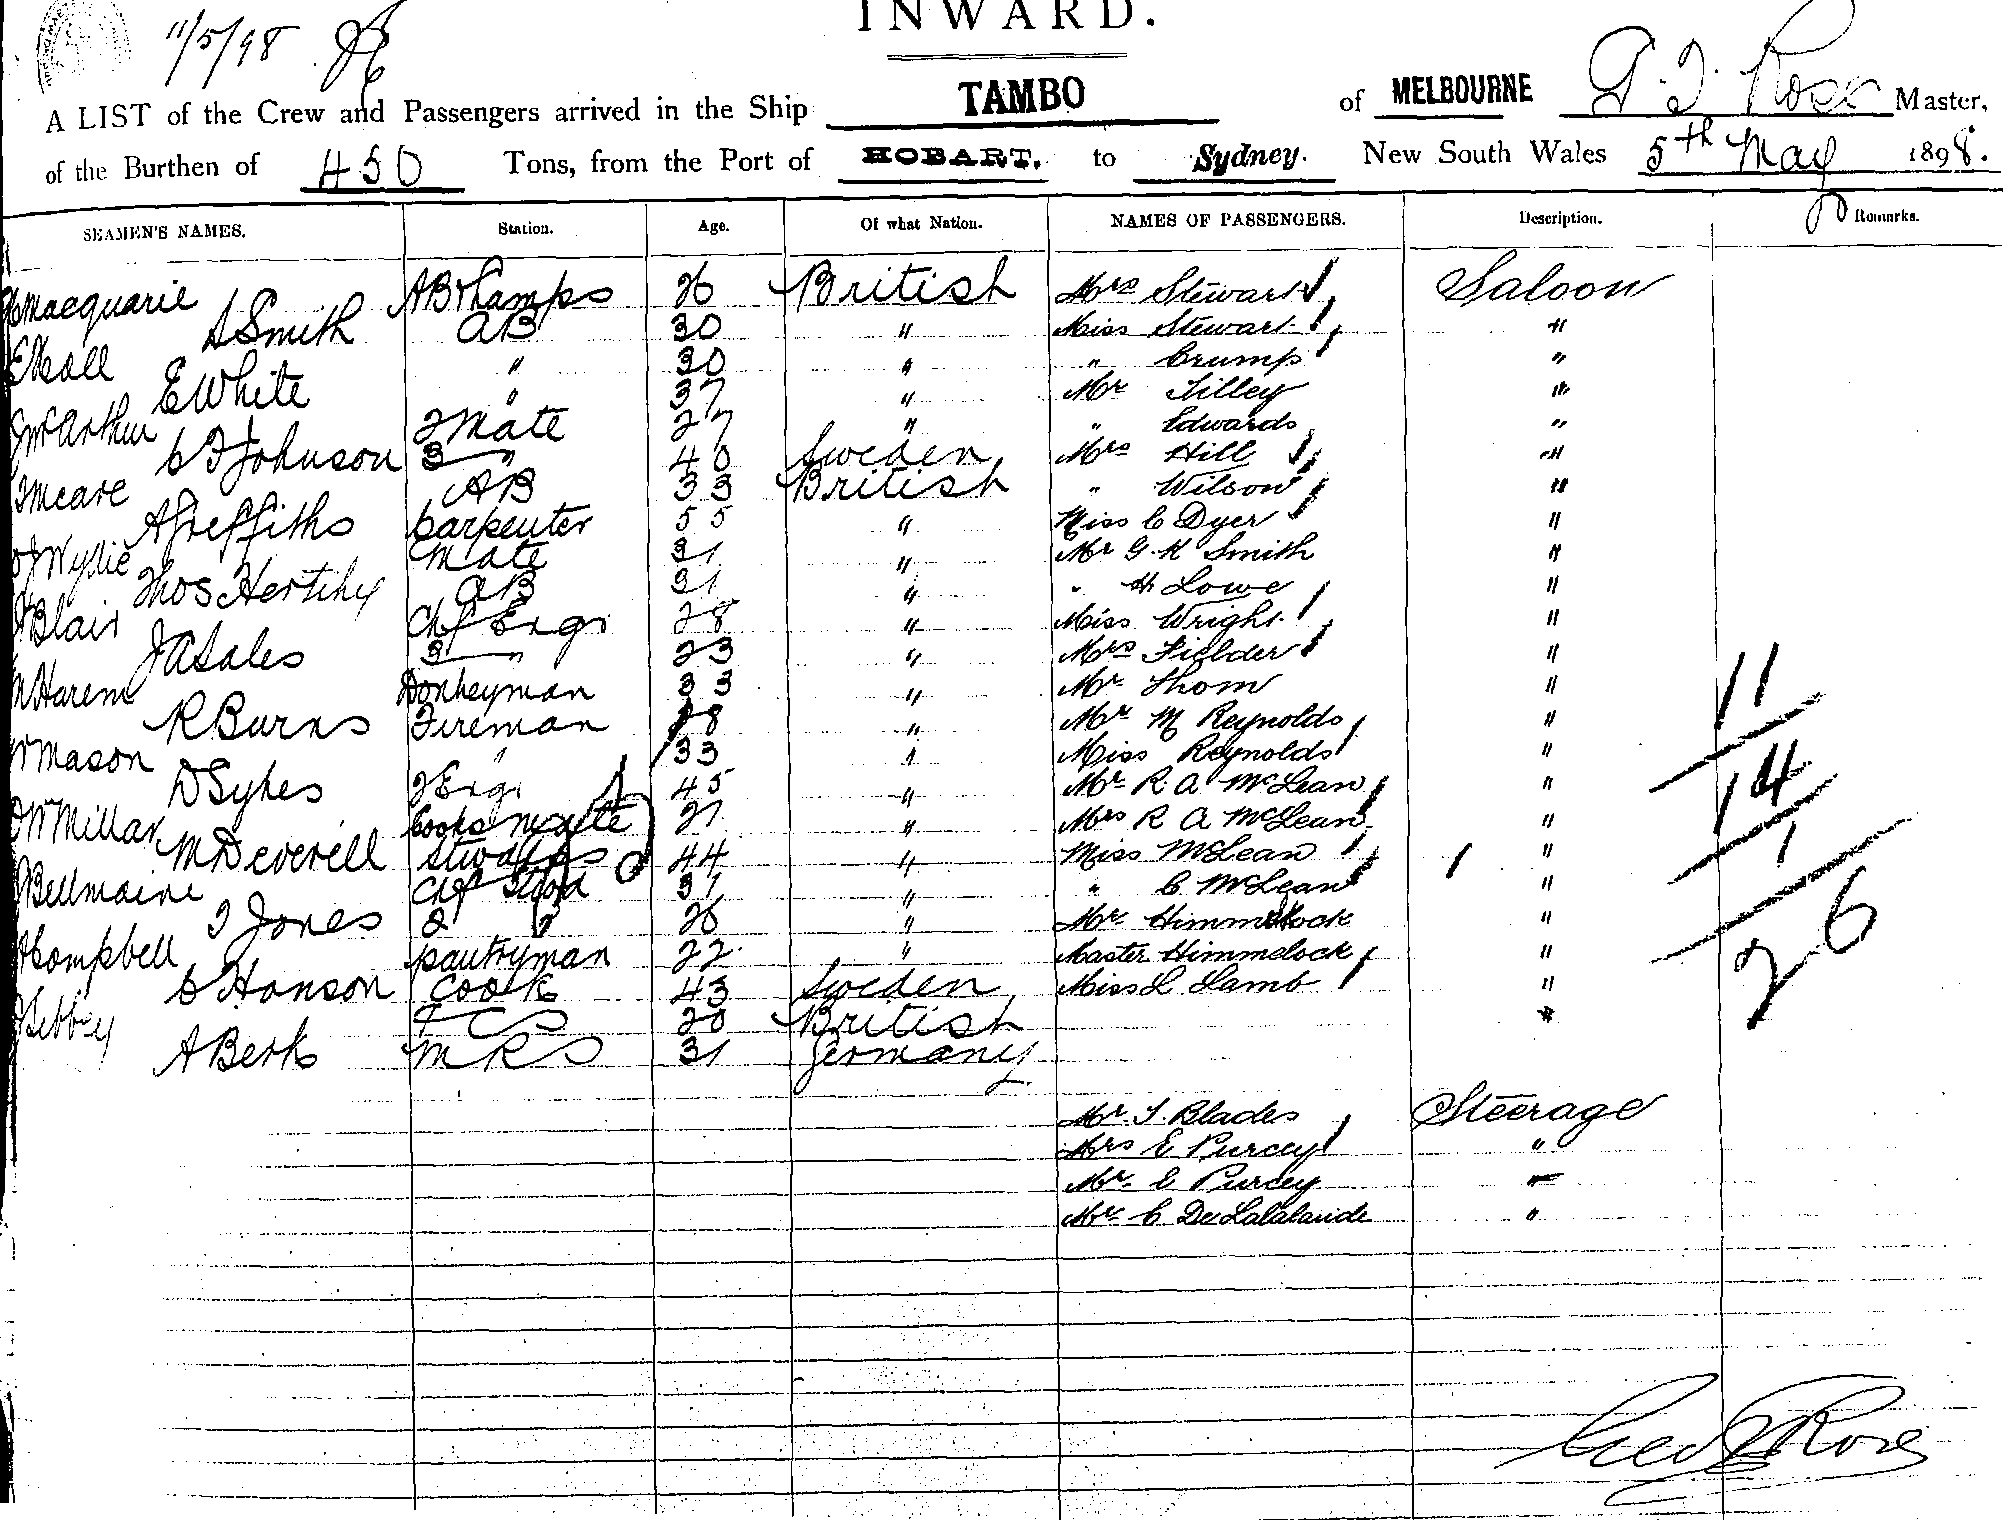 INWARD.
11/5/98
A LIST of the Crew and Passengers arrived in the Ship TAMBO of MELBOURNE G. T. Rose Master,
of the Burthen of 450 Tons, from the Port of HOBART. to Sydney. New South Wales 5th May 1898.
SEAMEN'S NAMES. Station. Age. Of what Nation. NAMES OF PASSENGERS. Description. Remarks.
Macquarie AB & Lamps 26 British Mrs Stewart Saloon
A Smith AB 30 " Miss Stewart "
E Neall " 30 " " Crump "
E White " 37 " Mr Tilley "
J McArthur 2 Mate 27 " " Edwards "
C F Johnson 3 " 40 Sweden Mrs Hill "
Meare AB 33 British " Wilson "
A Greffiths Carpenter 55 " Miss C Dyer "
J Wylie Mate 31 " Mr G. K Smith "
Thos Hertihy AB 31 " " H Lowe "
Blair Chf Engr 28 " Miss Wright "
J A Sales 3 " 23 " Mrs Fielder "
Harem Donkeyman 33 " Mr Thom " 11
R Burns Fireman 28 " Mr M Reynolds "
Mason " 33 " Miss Reynolds "
D Sykes 2 Engr 45 " Mr R. A. McLean " 14
W Millar Cooks mate 21 " Mrs R A McLean "
M Deverell Stwdess 44 " Miss McLean " 1
Bellmaine Chf Stwd 31 " " C McLean "
J Jones 2 " 26 " Mr Himmelock " 26
Campbell pantryman 22 " Master Himmelock "
C Hanson Cook 43 Sweden Miss L Lamb "
Sibbey F C S 20 British "
A Berk M R S 31 Germany
Mr J. Blades Steerage
Mrs E Purcey "
Mr. C Purcey "
Mr C De Lalalande "
Geo T Rose